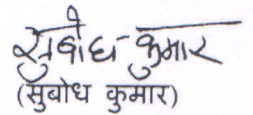 सुबोध कुमार
(सुबोध कुमार)